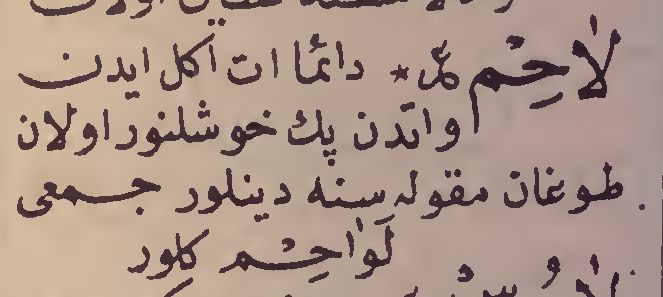 لَاحِم عم * دائما ات اكل ايدن
و اتدن پك خوشلنور اولان
طوغان مقوله سنه دينلور جمعى
لَوَاحِم كلور